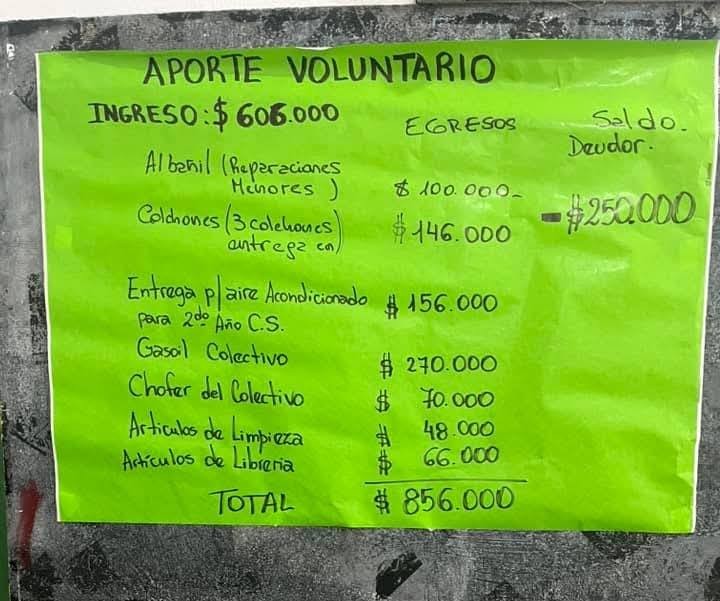 APORTE VOLUNTARIO
INGRESO: $ 606.000
EGRESOS
Saldo.
Deudor.
Albañil (Reparaciones
Menores) $ 100.000-
- $250.000
Colchones (3 colchones) $ 146.000
entrega en)
Entrega p/aire Acondicionado $ 156.000
para 2do Año C.S.
Gasoil Colectivo $ 270.000
Chofer del Colectivo $ 70.000
Articulos de Limpieza $ 48.000
Artículos de Libreria $ 66.000
TOTAL $ 856.000